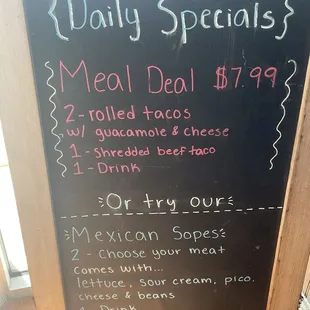 {Daily Specials}
Meal Deal $7.99
2 - rolled tacos
w/ guacamole & cheese
1 - Shredded beef taco
1 - Drink
Or try our
Mexican Sopes
2 - Choose your meat
Comes with...
lettuce, sour cream, pico,
cheese & beans
1 - Drink